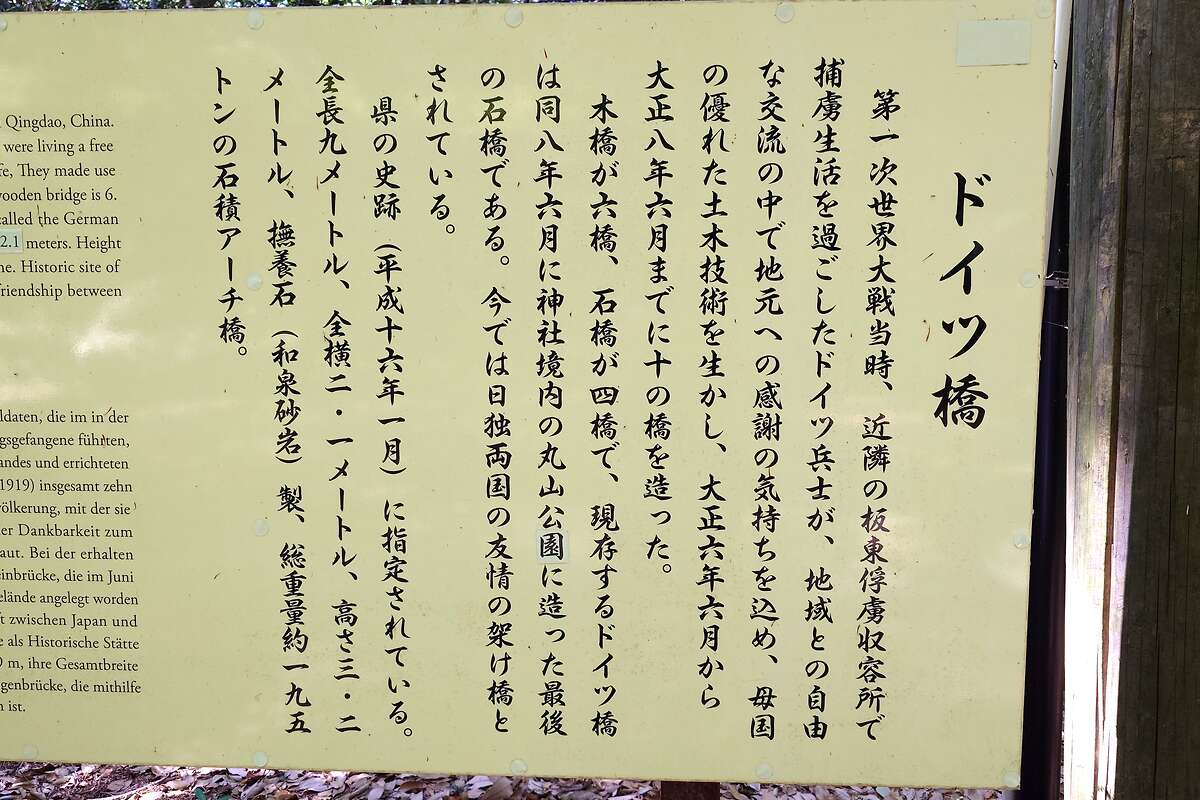 ドイツ橋
第一次世界大戦当時、近隣の板東俘虜収容所で
捕虜生活を過ごしたドイツ兵士が、地域との自由
な交流の中で地元への感謝の気持ちを込め、母国
の優れた土木技術を生かし、大正六年六月から
大正八年六月までに十の橋を造った。
木橋が六橋、石橋が四橋で、現存するドイツ橋
は同八年六月に神社境内の丸山公園に造った最後
の石橋である。今では日独両国の友情の架け橋と
されている。
県の史跡（平成十六年一月）に指定されている。
全長九メートル、全横二・一メートル、高さ三・二
メートル、撫養石（和泉砂岩）製、総重量約一九五
トンの石積アーチ橋。
Qingdao, China.
were living a free
They made use
bridge is 6.
called the German
2.1 meters. Height
Historic site of
friendship between
die im in der
führten,
und errichteten
1919) insgesamt zehn
mit der sie
Dankbarkeit zum
Bei der erhalten
die im Juni
angelegt worden
zwischen Japan und
als Historische Stätte
m, ihre Gesamtbreite
die mithilfe
ist.